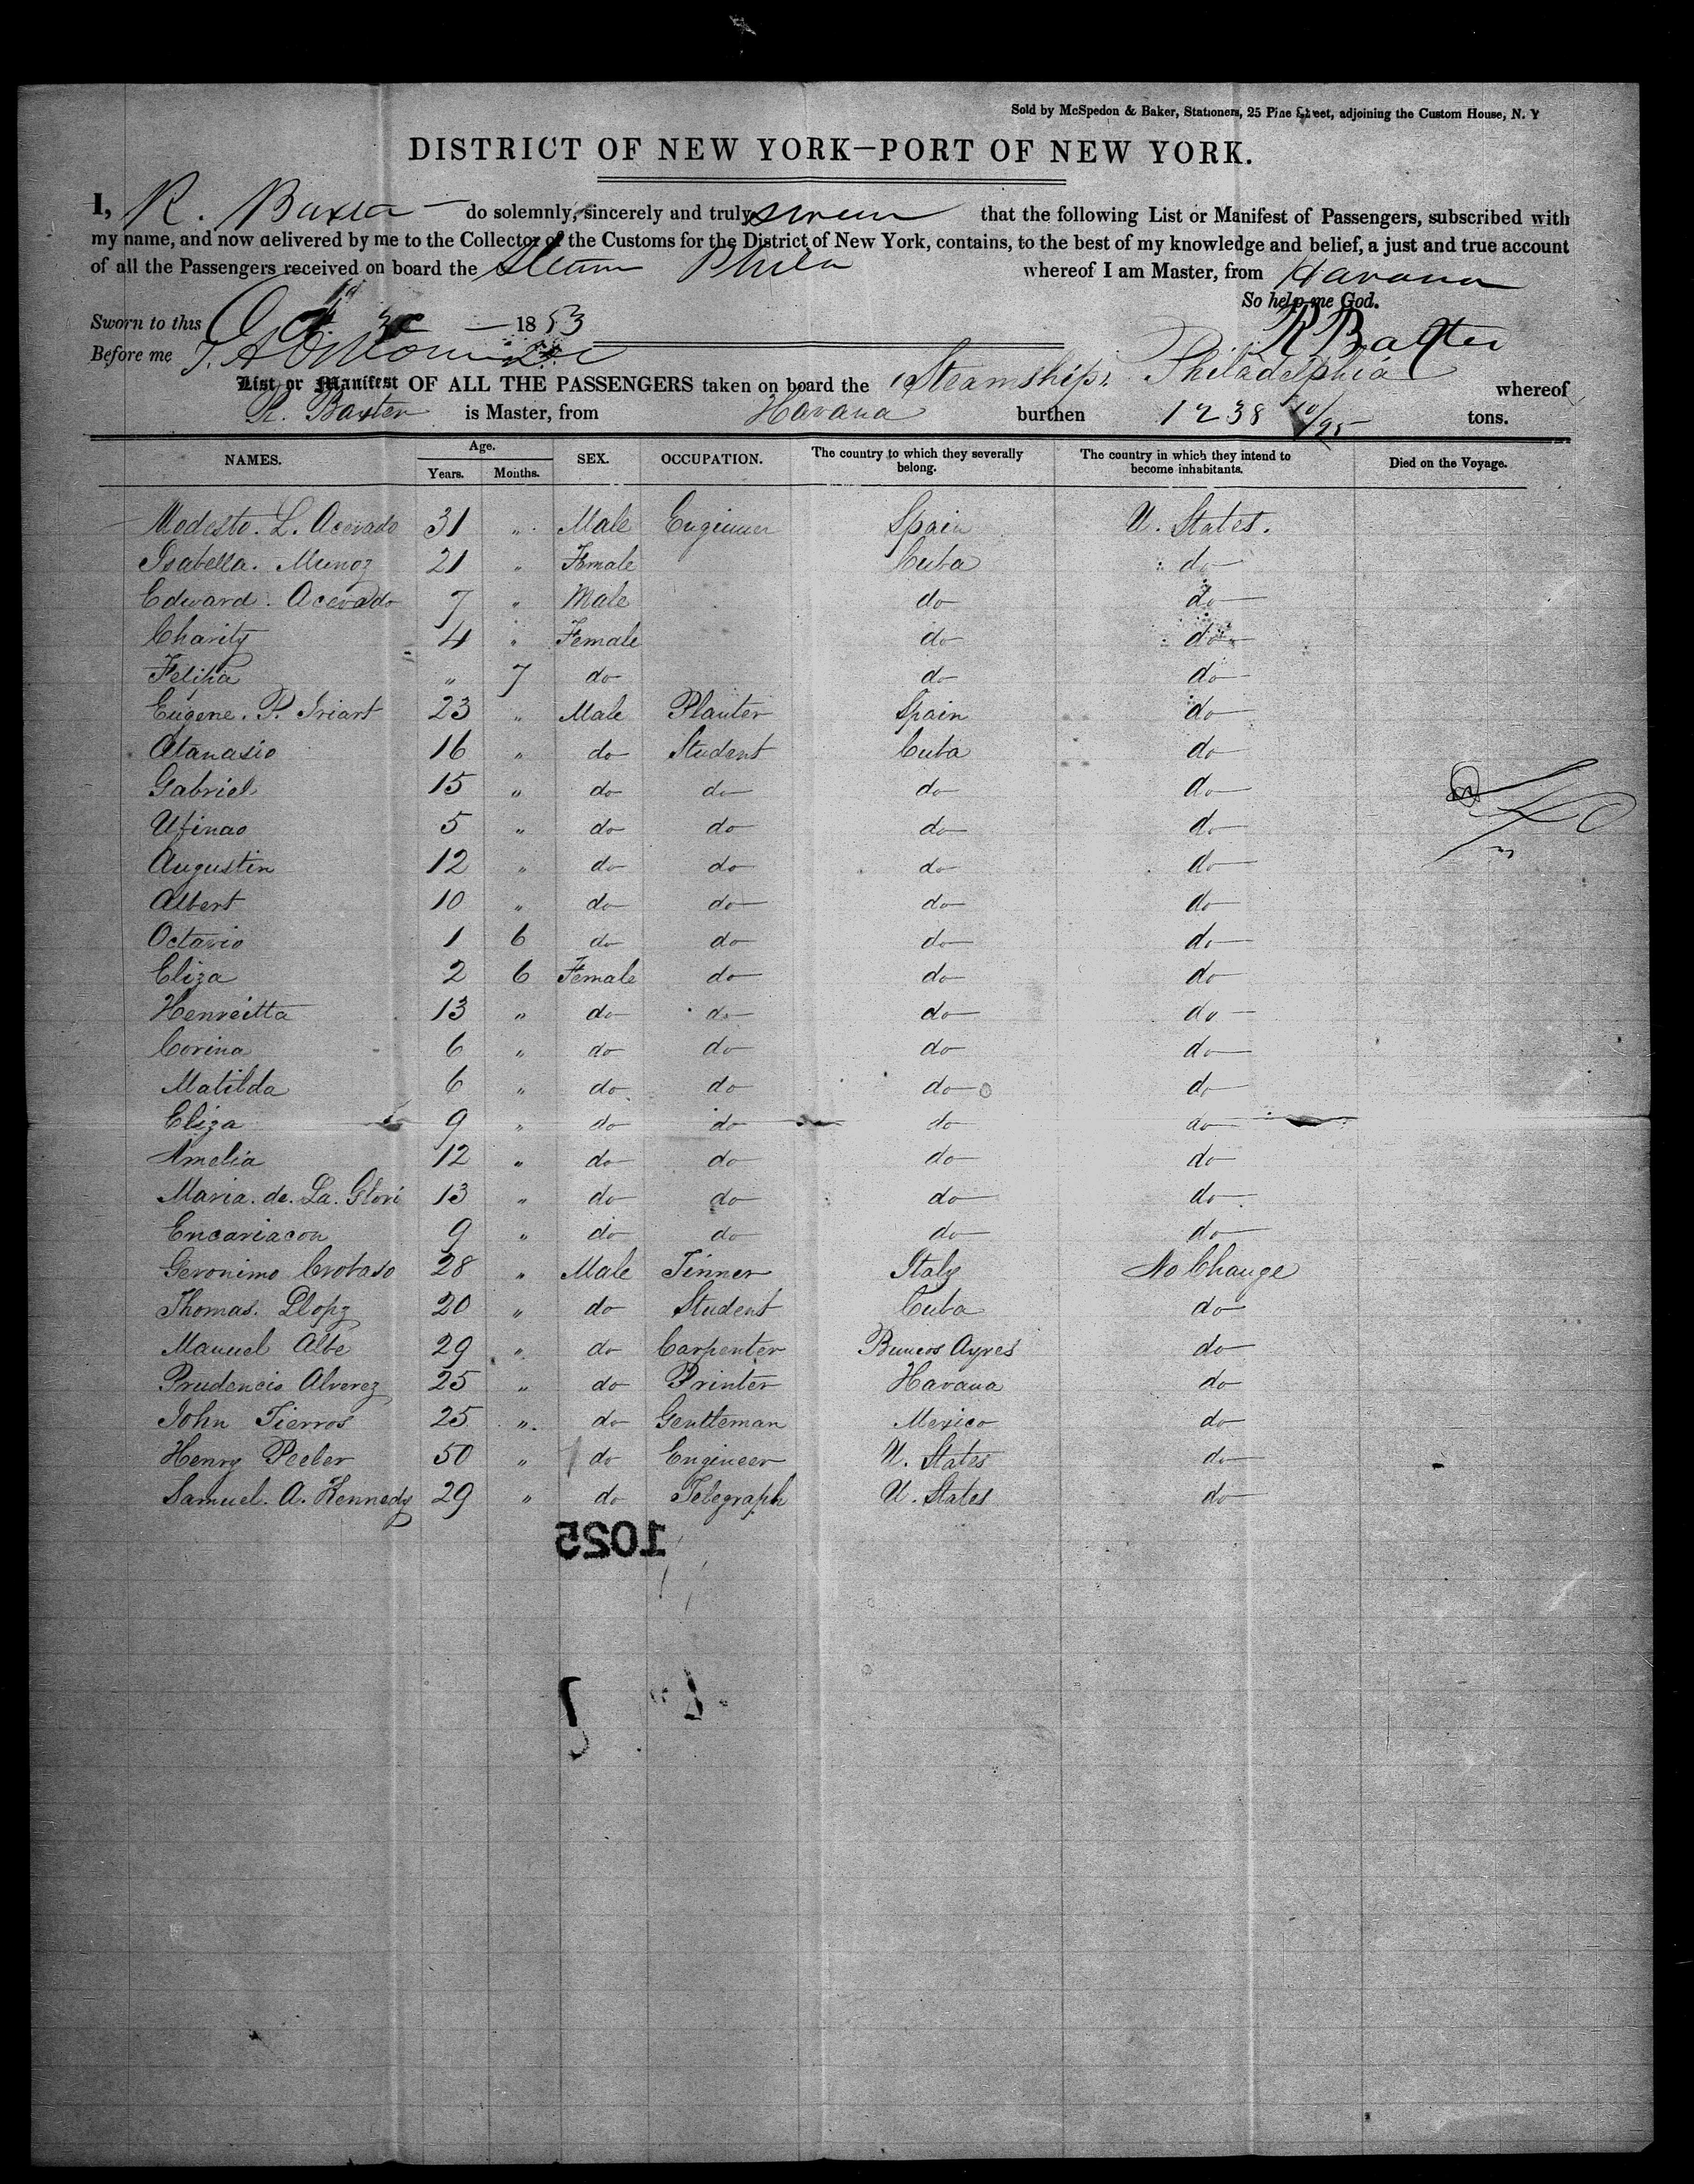 Sold by McSpedon & Baker, Stationers, 25 Pine Street, adjoining the Custom House, N. Y
DISTRICT OF NEW YORK—PORT OF NEW YORK.
I, R. Baxter do solemnly, sincerely and truly swear that the following List or Manifest of Passengers, subscribed with
my name, and now delivered by me to the Collector of the Customs for the District of New York, contains, to the best of my knowledge and belief, a just and true account
of all the Passengers received on board the Steam Phila whereof I am Master, from Havana
So help me God.
Sworn to this Oct 1853 R Baxter
Before me
List or Manifest OF ALL THE PASSENGERS taken on board the Steamship Philadelphia whereof
R. Baxter is Master, from Havana burthen 1238 10/95 tons.
NAMES. Age. Years. Months. SEX. OCCUPATION. The country to which they severally belong. The country in which they intend to become inhabitants. Died on the Voyage.
Modesto. L. Acevado 31 " Male Engineer Spain U. States.
Isabella. Munoz 21 " Female Cuba do
Edward. Acevado 7 " Male do do
Charity 4 " Female do do
Felitia " 7 do do do
Eugene. P. Iriart 23 " Male Planter Spain do
Atanasio 16 " do Student Cuba do
Gabriel 15 " do do do do
Ufinao 5 " do do do do
Augustin 12 " do do do do
Albert 10 " do do do do
Octavio 1 6 do do do do
Eliza 2 6 Female do do do
Henreitta 13 " do do do do
Corina 6 " do do do do
Matilda 6 " do do do do
Eliza 9 " do do do do
Amelia 12 " do do do do
Maria. de. La. Glori 13 " do do do do
Encariacon 9 " do do do do
Geronimo Crotaso 28 " Male Tinner Italy No Change
Thomas. Llopz 20 " do Student Cuba do
Manuel Albe 29 " do Carpenter Buneos Ayres do
Prudencio Alverez 25 " do Printer Havana do
John Tierros 25 " do Gentleman Mexico do
Henry Peeler 50 " do Engineer U. States do
Samuel. A. Kennedy 29 " do Telegraph U. States do
1025